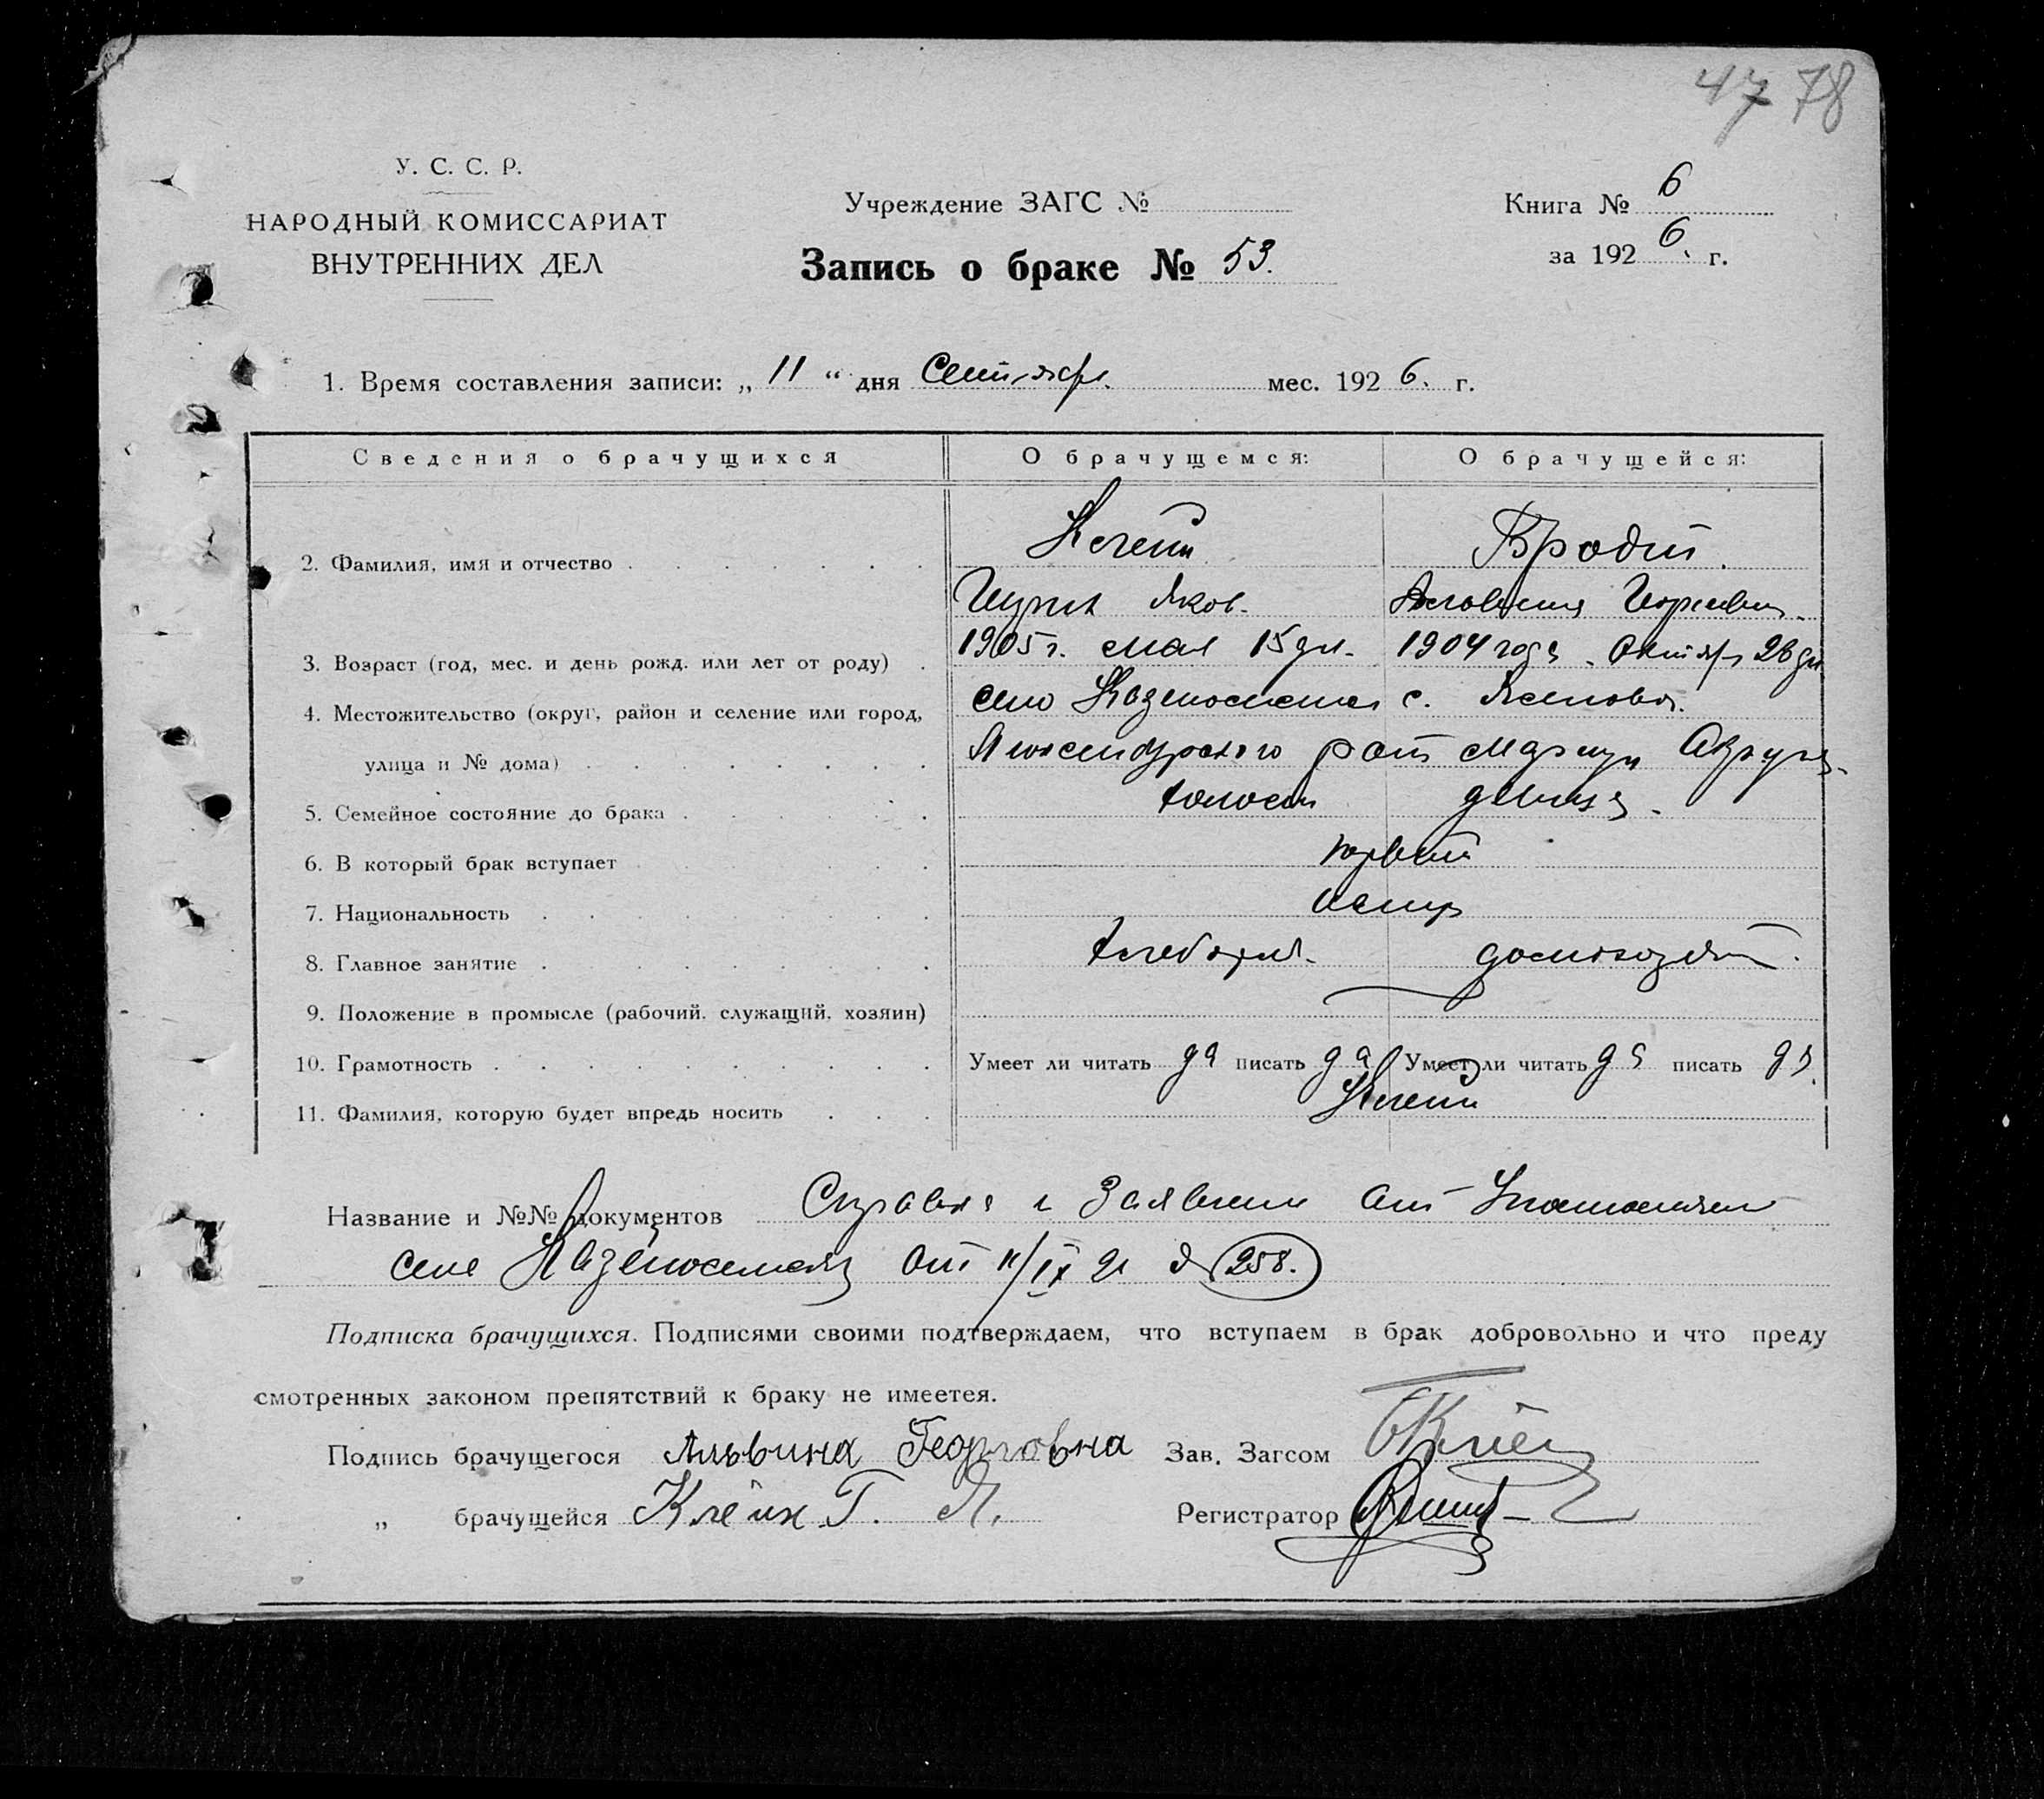 47 78
У. С. С. Р.
НАРОДНЫЙ КОМИССАРИАТ
ВНУТРЕННИХ ДЕЛ
Учреждение ЗАГС №
Запись о браке № 53.
Книга № 6
за 192 6. г.
1. Время составления записи: „ 11 “ дня Сентября. мес. 192 6. г.
Сведения о брачущихся О брачущемся: О брачущейся:
2. Фамилия, имя и отчество Клейн
Яков.
3. Возраст (год, мес. и день рожд. или лет от роду) 1905 г. мая 15 дн. 1904 года Октяб
4. Местожительство (округ, район и селение или город, село с.
улица и № дома)
5. Семейное состояние до брака холост девица
6. В который брак вступает первый
7. Национальность немцы
8. Главное занятие хлебороб домохозяй
9. Положение в промысле (рабочий, служащий, хозяин)
10. Грамотность Умеет ли читать да писать да Умеет ли читать да писать да
11. Фамилия, которую будет впредь носить Клейн
Название и №№ документов Справка и Заявлени от
села от 11/IX 258.
Подписка брачущихся. Подписями своими подтверждаем, что вступаем в брак добровольно и что преду
смотренных законом препятствий к браку не имеется.
Подпись брачущегося Альвина Георговна Зав. Загсом
„ брачущейся Клейн Г. Я. Регистратор